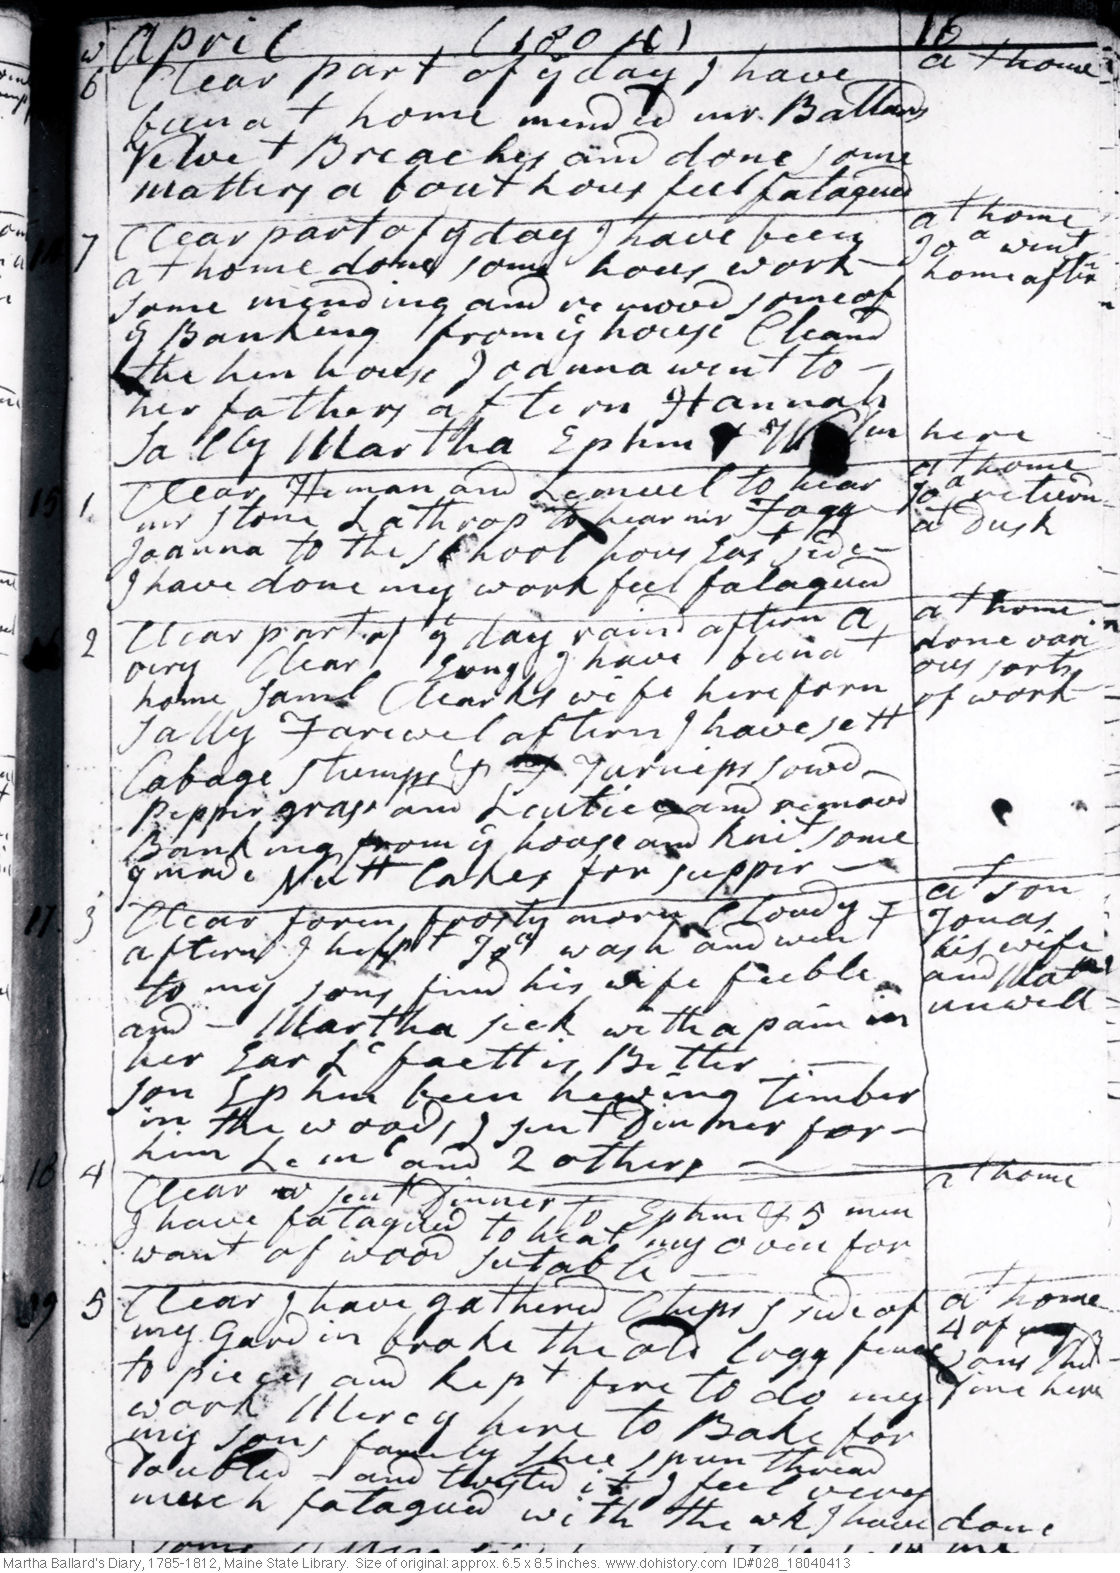 w April (1804) 16
6 Clear part of ÿ day I have at home
been at home mended mr. Ballards
Velvet Breaches and done some
matters about hous feel fatagued
7 Clear part of ÿ day I have been at home
at home done some hous work Joa went
some mending and removd some of home aftern
ÿ Banking from ÿ house Cleand
the hen house Joanna went to
her fathers aftern Hannah
Sally Martha Ephm & here
15 1 Clear Heman and Lemuel to hear at home
mr Stone Lathrop to hear mr Fogg Joa return
Joanna to the school hous East side at dusk
I have done my work feel fatagued
2 Clear part of ÿ day raind aftern a at home
very Clear Evng I have been at done vari
home Saml Clearks wife here forn ous sorts
Sally Farewel aftern I have sett of work
Cabage stumps & Turnips sowd
Pepper grass and Lettice and removd
Banking from ÿ house and knit some
& made Nutt Cakes for supper
17 3 Clear foren frosty morn Cloudy at son
aftern I helppt Joa wash and went Jonas
to my sons find his wife feeble his wife
and Martha sick with a pain in and
her Ear Lt faett is Better unwell
son Ephm been hewing timber
in the woods, I sent Dinner for
him Leml and 2 others
18 4 Clear sent Dinner to Ephm & 5 men at home
I have fatagued to heat my oven for
want of wood sutable
19 5 Clear I have gathered Chips ÿ side of at home
my Gardin broke the old Logg fence 4 of my
to pieces and kept fire to do my sons
work Mercy here to Bake for here
my sons family shee spun thread
Doubled and twisted it I feel very
much fatagued with the wk I have done
Martha Ballard's Diary, 1785-1812, Maine State Library. Size of original: approx. 6.5 x 8.5 inches. www.dohistory.com ID#028_18040413